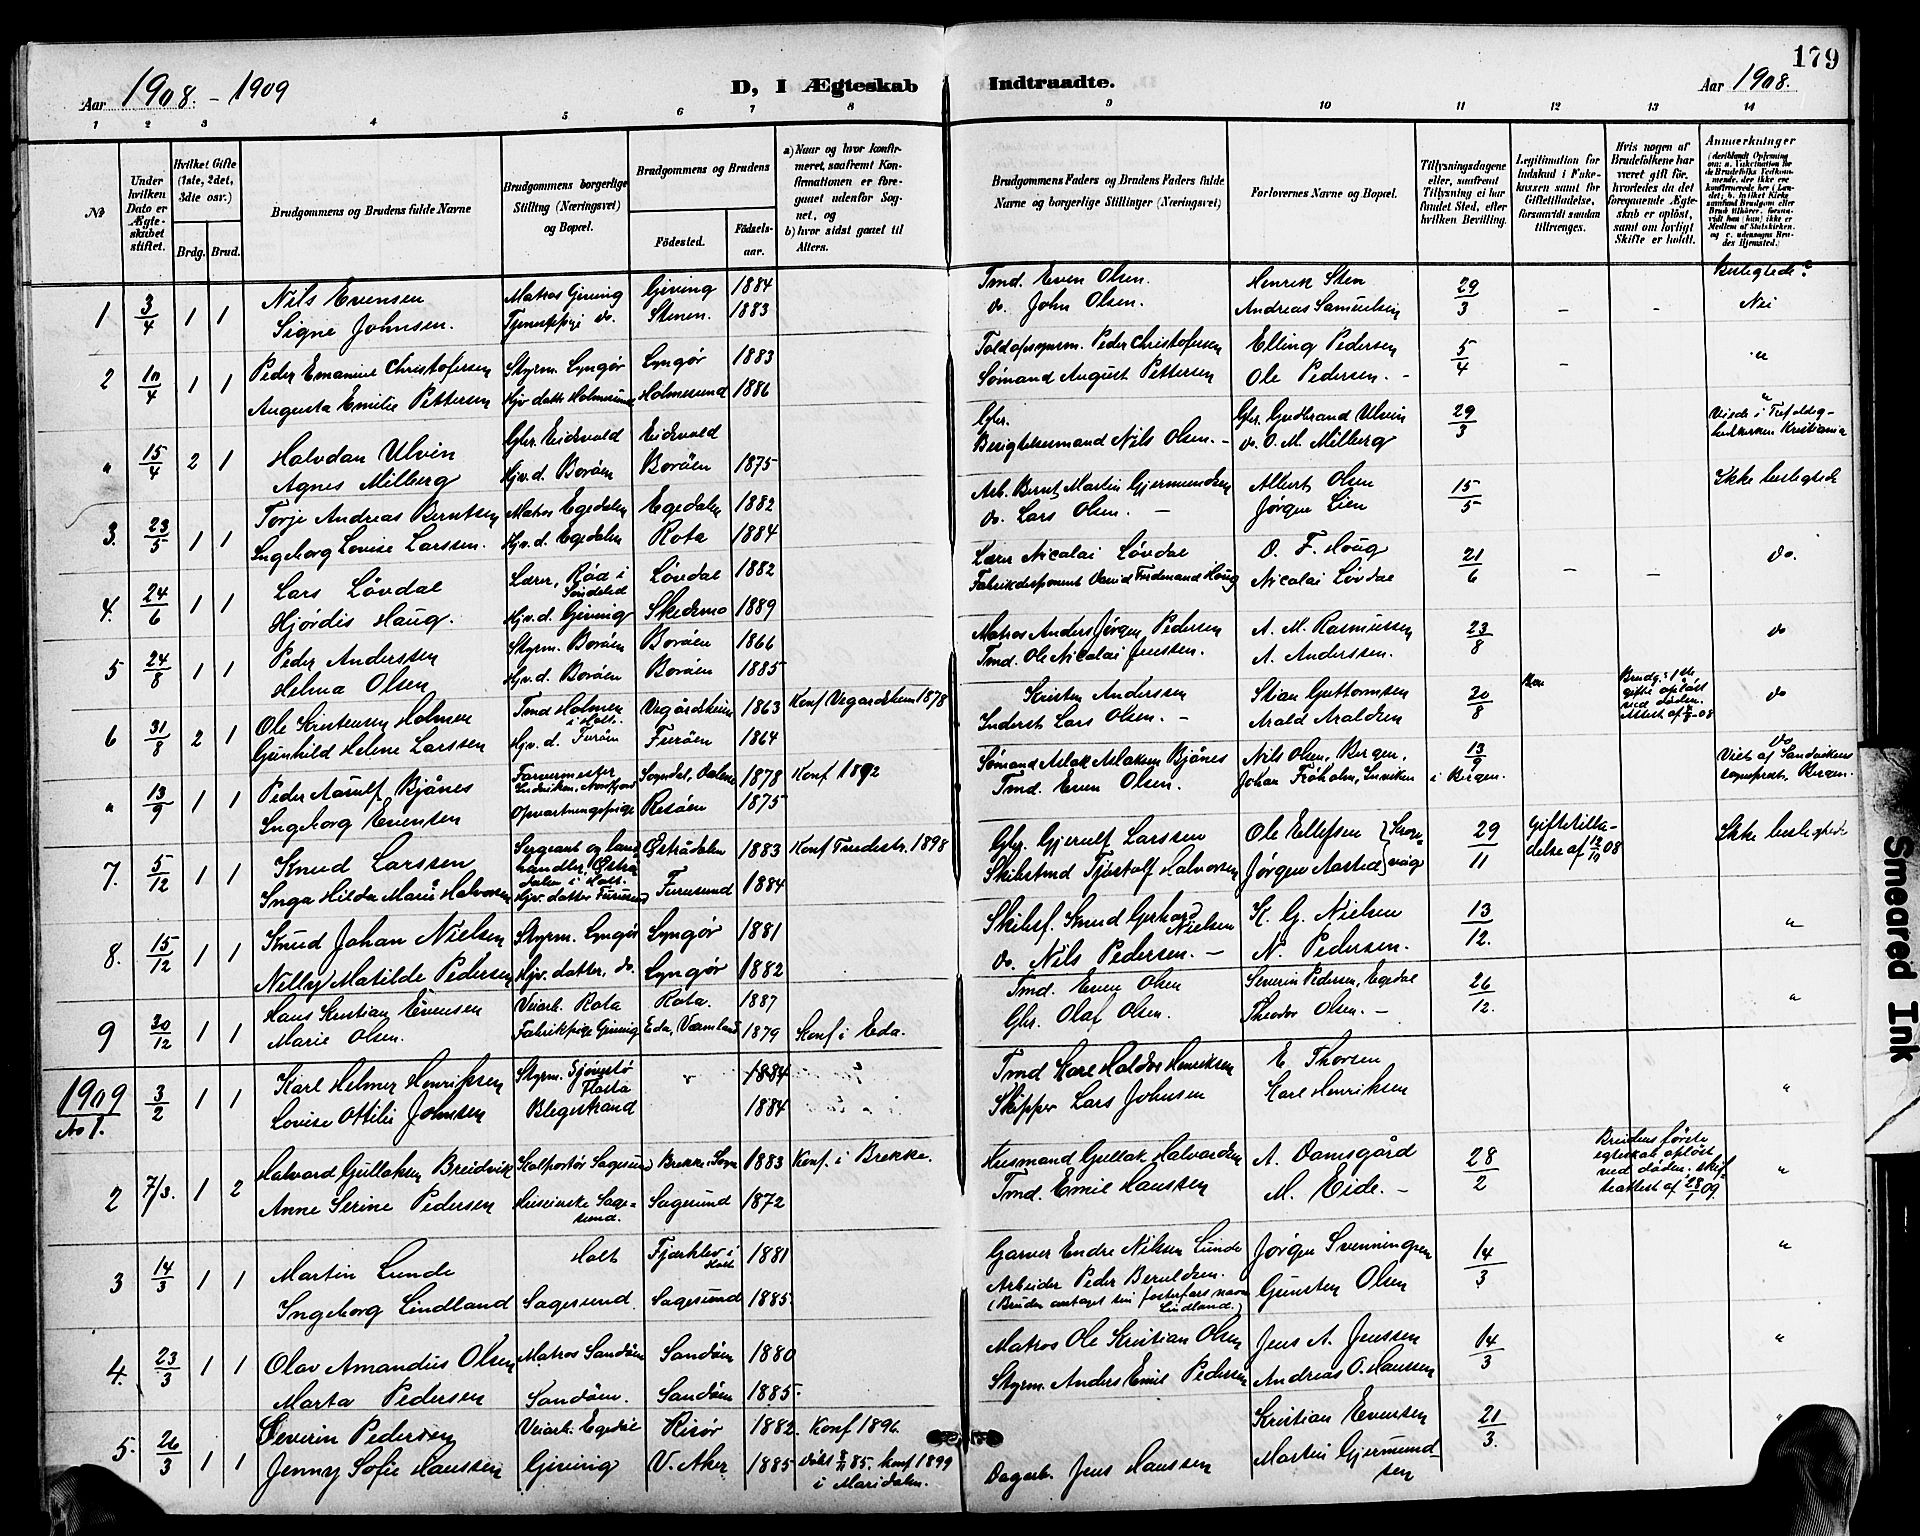 179
Aar 1908. - 1909
D, I Ægteskab Indtraadte.
Aar 1908.
1 2 3 4 5 6 7 8 9 10 11 12 13 14
№
Under hvilken Dato er Ægteskabet stiftet.
Hvilket Gifte (1ste, 2det, 3die osv.)
Brdg. Brud.
Brudgommens og Brudens fulde Navne
Brudgommens borgerlige Stilling (Næringsvei) og Bopæl.
Brudgommens og Brudens
Födested.
Födselsaar.
a) Naar og hvor konfirmeret, saafremt Konfirmationen er foregaaet udenfor Sognet, og
b) hvor sidst gaaet til Alters.
Brudgommens Faders og Brudens Faders fulde Navne og borgerlige Stillinger (Næringsvei)
Forlovernes Navne og Bopæl.
Tillysningsdagene eller, saafremt Tillysning ei har fundet Sted, efter hvilken Bevilling.
Legitimation for Indskud i Enkekassen samt for Giftetilladelse, forsaavidt saadan tiltrænges.
Hvis nogen af Brudefolkene har været gift för, hvorledes da det foregaaende Ægteskab er oplöst, samt om lovligt Skifte er holdt.
Anmærkninger
Beslegtede?
1 3/4 1 1 Nils Evensen Matros Giving Giving 1884 Tmd. Even Olsen. Henrik Sten 29/3 - - Nei
Signe Johnsen. Tjenestepige do. Stenen. 1883 do. John Olsen. Andreas Samuelsen
2 10/4 1 1 Peder Emanuel Christofersen Styrm. Lyngör Lyngør 1883 Toldopsynsm. Peder Christofersen Elling Pedersen 5/4 - "
Augusta Emilie Pettersen Hjv datt. Holmesund Holmesund 1886 Sømand August Pettersen Ole Pedersen. -
" 15/4 2 1 Halvdan Ulvin Gbr. Eidsvold Eidsvold Gbr. Gbr. Gudbrand Ulvin 29/3 Viede i Trefoldighedskirken Kristiania
Agnes Milberg Hjv.d. Borøen Borøen 1875 Nils Olsen. - do. O. M. Milberg
3. 23/5 1 1 Torje Andreas Berntsen Matros Egedalen Egedalen 1882 Arb. Bernt Martin Gjermundsen Albert Olsen 15/5 Ikke beslegtede
Ingeborg Lovise Larssen. Hjv.d. Egedalen Rota 1884 do. Lars Olsen. - Jørgen Lien
4. 24/6 1 1 Lars Lövdal Lærer, Röd i Söndeled Lövdal 1882 Lærer Nicolai Lövdal O. F. Houg 21/6 - - do.
Hjördis Haug. Hjv.d. Giving Skedsmo 1889 Fabrikdisponent David Ferdinand Houg Nicolai Lövdal
5 24/8 1 1 Peder Anderssen Styrm. Borøen Borøen 1866 Matros Anders Jørgen Pedersen A. M. Rasmussen 23/8 do
Helma Olsen Hjv.d. Borøen Borøen 1885 Tmd. Ole Nicolai Jenssen. A. Anderssen.
6 31/8 2 1 Ole Kristensen Holmen Tmd Holmen i Holt. Vegårdsheien 1863 Konf Vegardsheien 1878 Kristen Anderssen Stian Guttormsen 30/8 Brudg: 1ste gifte oplöst ved döden. do
Gunhild Helene Larssen Hjv.d. Furöen Furöen 1864 Inderst Lars Olsen. - Arald Araldsen
" 13/9 1 1 Peder Aasulf Bjånes Farvermester Sogndal, Dalene 1878 Konf 1892 Sømand Aslak Aslaksen Bjånes Nils Olsen, Bergen, 13/9 i Bergen. do Viet af Sandvikens sogneprest, Bergen.
Ingeborg Evensen Opvartningspige Risöen 1875 Tmd. Even Olsen. Johan Fröholm,
7. 5/12 1 1 Knud Larssen Sergeant og landhandler, Østrådalen i Holt. Østrådalen 1883 Konf Tvedestr. 1898 Gbr. Gjerulf Larssen Ole Ellefsen 29/11 Giftetilladelse af 12/11 08 Ikke beslegtede
Inga Hilda Marie Halvorsen Hjv. datter Furusund Furusund 1884 Skibstmd Tjøstolf Halvorsen Jørgen Aasted
8. 15/12 1 1 Knud Johan Nielsen Styrm. Lyngör Lyngør 1881 Skibsf. Knud Gerhard Nielsen K. G. Nielsen 13/12. "
Nelly Matilde Pedersen Hjv. datter, do. Lyngør 1882 do. Nils Pedersen. - N. Pedersen.
9 30/12 1 1 Hans Kristian Evensen Veiarb. Rota Rota. 1887 Tmd. Even Olsen Severin Pedersen, Egedal 26/12. "
Marie Olsen. Fabrikpige Giving Eda, Värmland 1879 Konf i Eda. Gbr. Olaf Olsen. Theodor Olsen. -
1909 No 1. 3/2 1 1 Karl Helmer Henriksen Styrm. Sjöngstø Flosta " 1884 Tmd Karl Haldor Henriksen E Thorsen "
Lovise Ottilie Johnsen Blegestrand 1884 Skipper Lars Johnsen Karl Henriksen
2 7/3. 1 2 Halvard Gullaksen Breidvik Kolportör Sagesund Brekke, Sogn 1883 Konf. i Brekke. Husmand Gullak Halvardsen A. Damsgård 28/2 Brudens første egteskab oplöst ved döden. skifteattest af 28/1 09 "
Anne Serine Pedersen Huseierske Sagesund. Sagesund 1872 Tmd. Emil Hanssen M. Eide. -
3 14/3 1 1 Martin Lunde Holt Fjærkleiv i Holt 1881 Garver Endre Nilsen Lunde Jörgen Svenningsen 14/3 "
Ingeborg Lindland Sagesund. Sagesund 1885. Arbeider Peder Beruldsen. (Bruden antaget sin fosterfars navn Lindland.) Gunsten Olsen
4. 23/3 1 1 Olav Amandus Olsen Matros Sandöen Sandöen 1880 Matros Ole Kristian Olsen Jens A. Jenssen 14/3 "
Marta Pedersen Sandöen. Sandöen 1885. Styrm. Anders Emil Pedersen Andreas O. Hanssen
5. 26/3 1 1 Severin Pedersen Veiarb. Egedal Risör 1882 Konf 1896. Kristian Evensen 21/3. "
Jenny Sofie Hanssen Giving V. Aker 1885 Döbt 8/11 85. Konf 1899 i Maridalen. Dagarb. Jens Hanssen Martin Gjermundsen
Smeared Ink